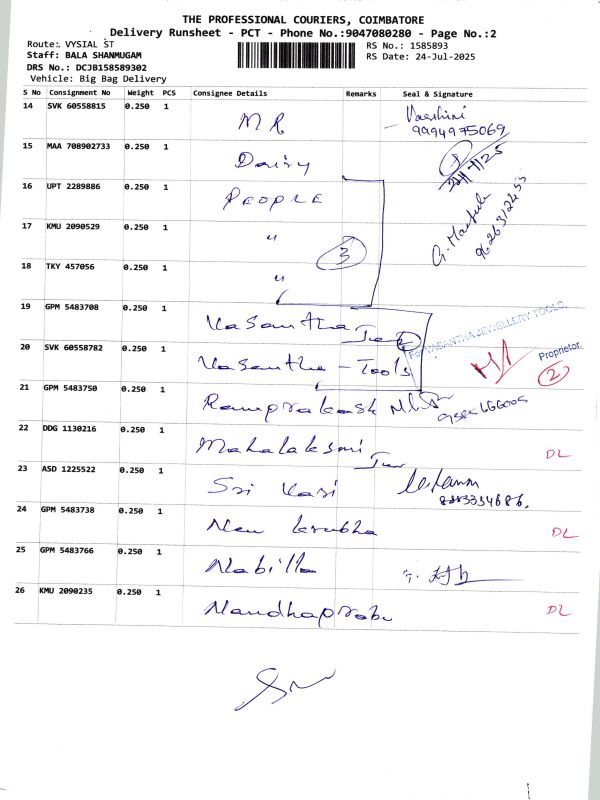 THE PROFESSIONAL COURIERS, COIMBATORE
Delivery Runsheet - PCT - Phone No.:9047080280 - Page No.:2
Route: VYSIAL ST
RS No.: 1585893
Staff: BALA SHANMUGAM
RS Date: 24-Jul-2025
DRS No.: DCJB158589302
Vehicle: Big Bag Delivery
S No Consignment No Weight PCS Consignee Details Remarks Seal & Signature
14 SVK 60558815 0.250 1 MR
9994975069
15 MAA 708902733 0.250 1 Dairy
16 UPT 2289886 0.250 1 PEOPLE
17 KMU 2090529 0.250 1 " 3
18 TKY 457056 0.250 1 "
19 GPM 5483708 0.250 1 Vasantha
For VASANTHA JEWELLERY TOOLS,
20 SVK 60558782 0.250 1 Vasantha - Tools
Proprietor.
2
21 GPM 5483750 0.250 1 Ramprakash
22 DDG 1130216 0.250 1 Mahalaksmi DL
23 ASD 1225522 0.250 1 Sri Kasi
24 GPM 5483738 0.250 1 New krubha DL
25 GPM 5483766 0.250 1 Nabilla
26 KMU 2090235 0.250 1 Nandhaprabu DL